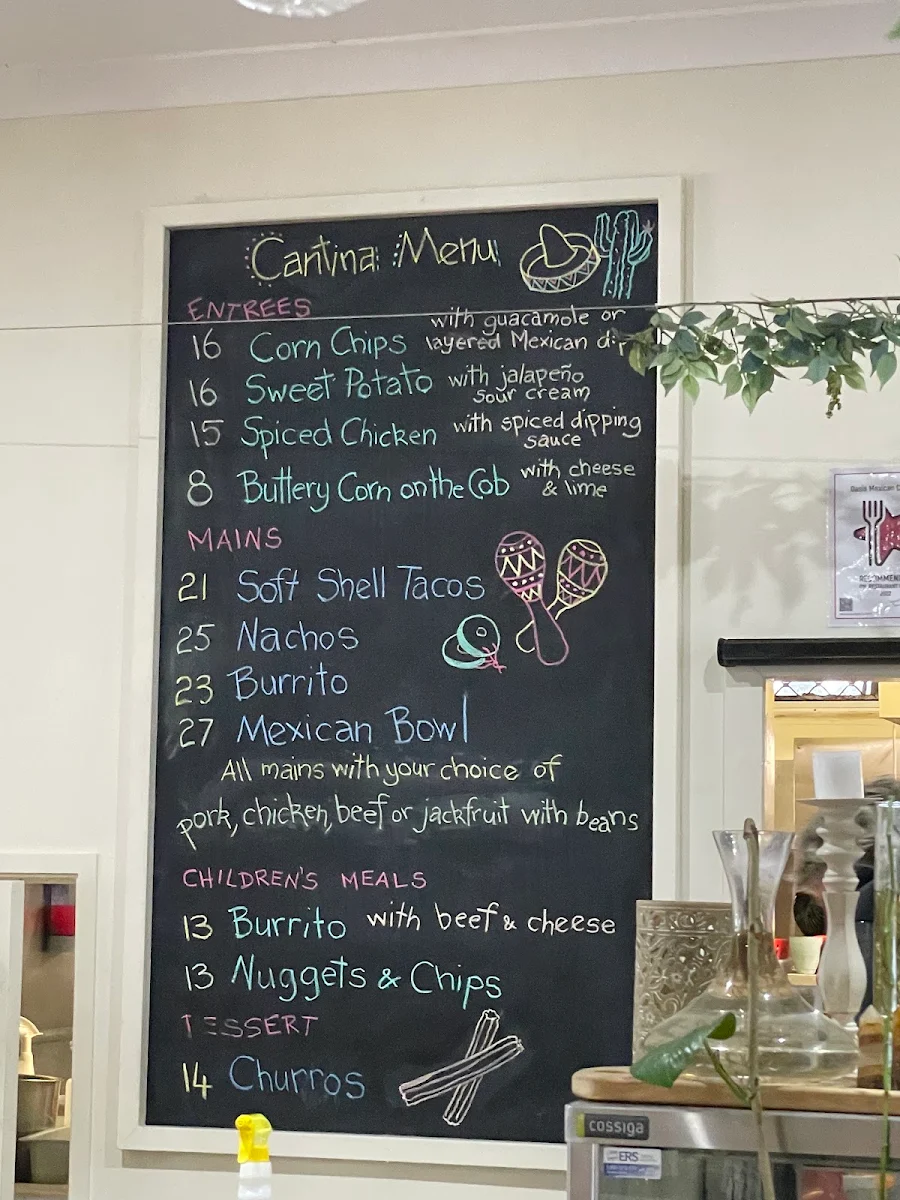 Cantina Menu
ENTREES
16 Corn Chips with guacamole or
layered Mexican dip
16 Sweet Potato with jalapeño
sour cream
15 Spiced Chicken with spiced dipping
sauce
8 Buttery Corn on the Cob with cheese
& lime
MAINS
21 Soft Shell Tacos
25 Nachos
23 Burrito
27 Mexican Bowl
All mains with your choice of
pork, chicken, beef or jackfruit with beans
CHILDREN'S MEALS
13 Burrito with beef & cheese
13 Nuggets & Chips
DESSERT
14 Churros
cossiga
ERS